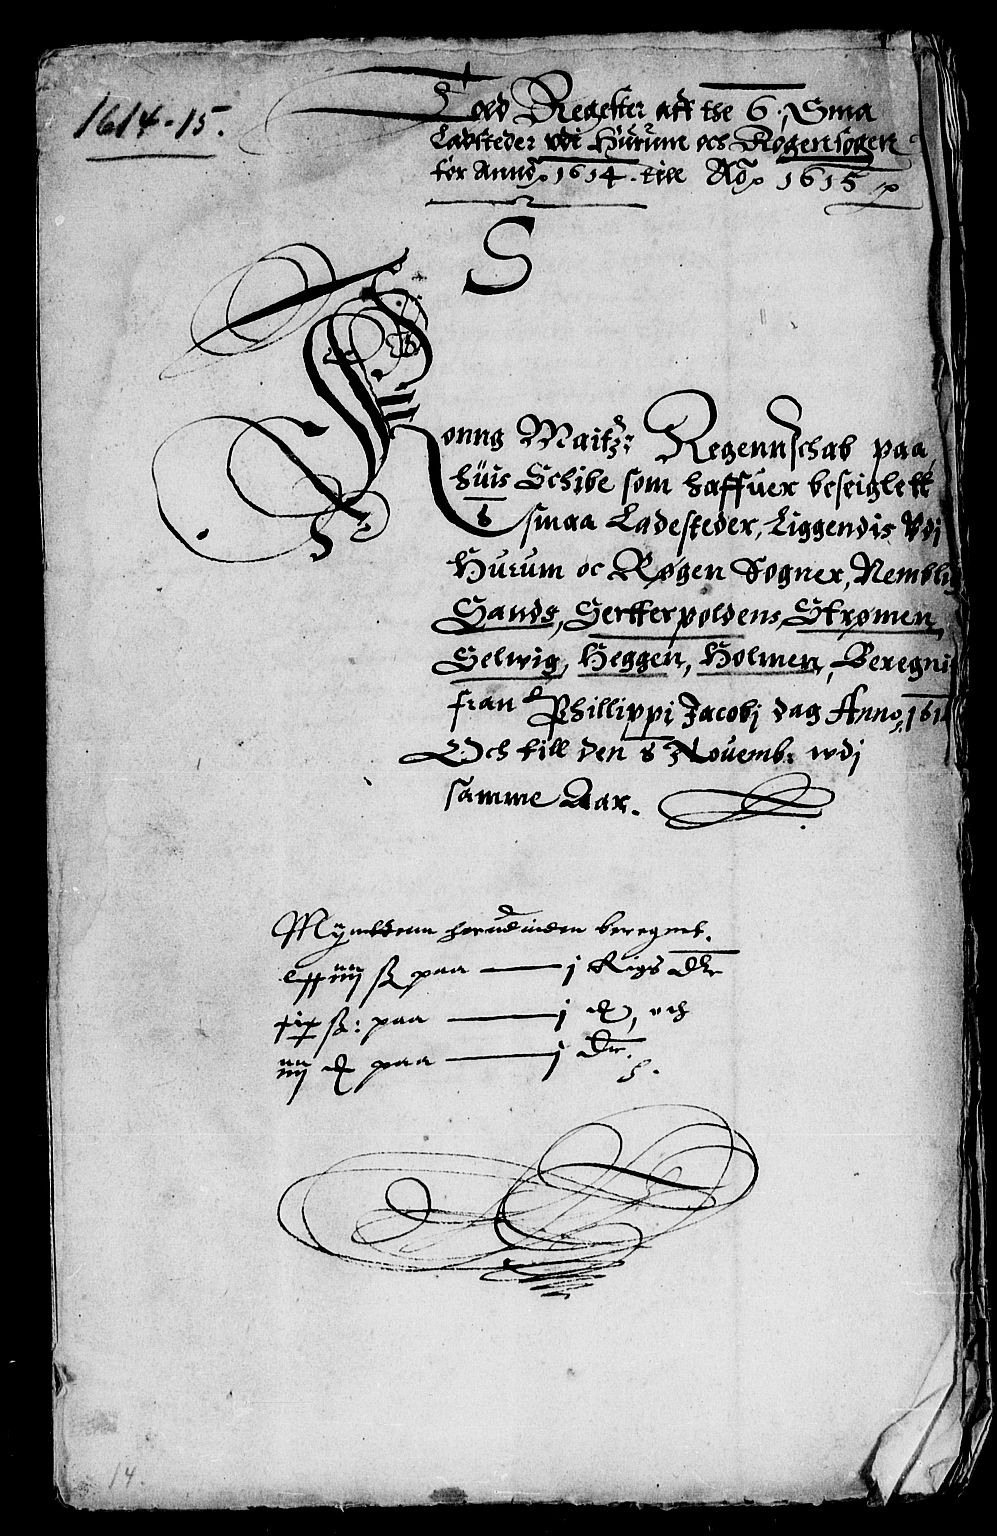 1614-15.
Told Regester aff the 6 Sma
Ladsteder vdi Hurum och Rogensogen
for Anno 1614. till Ao 1615
S
Konng Maitz: Regennschab paa
huis Schibe som haffuer beseiglett
6 smaa Ladesteder, Liggendis Vdi
Hurum oc Røgen Sogner, Nemblig
Sands, Sertterpoldens, Strømen,
Selwig, Heggen, Holmen, Beregnit
fran Phillippi Jacobj dag Anno, 161
Och till den 8 Nouemb: wdj
samme Aar.
Mÿntenn herudinden beregnt.
iiij ß paa — j Rigs Dlr
ß: paa — j , och
iiij paa — j Dlr.
14.